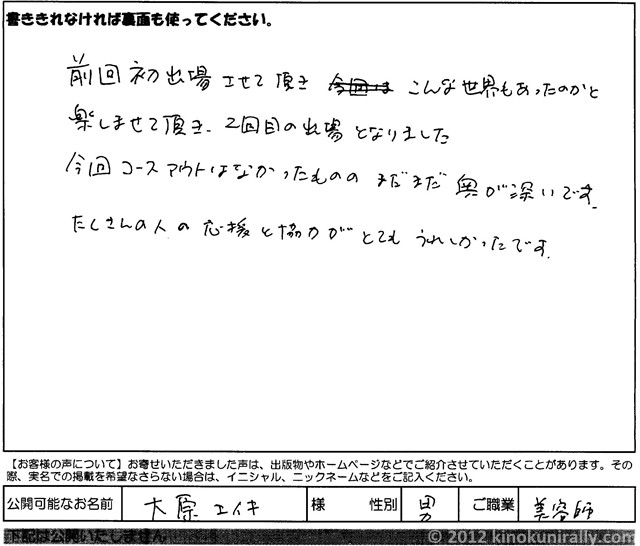 書ききれなければ裏面も使ってください。
前回初出場させて頂き 今回は こんな世界もあったのかと
楽しませて頂き、2回目の出場となりました
今回コースアウトはなかったものの まだまだ 奥が深いです。
たくさんの人の応援と協力がとても うれしかったです。
【お客様の声について】お寄せいただきました声は、出版物やホームページなどでご紹介させていただくことがあります。その
際、実名での掲載を希望なさらない場合は、イニシャル、ニックネームなどをご記入ください。
公開可能なお名前 大原 エイキ 様 性別 男 ご職業 美容師
下記は公開いたしません
© 2012 kinokunirally.com